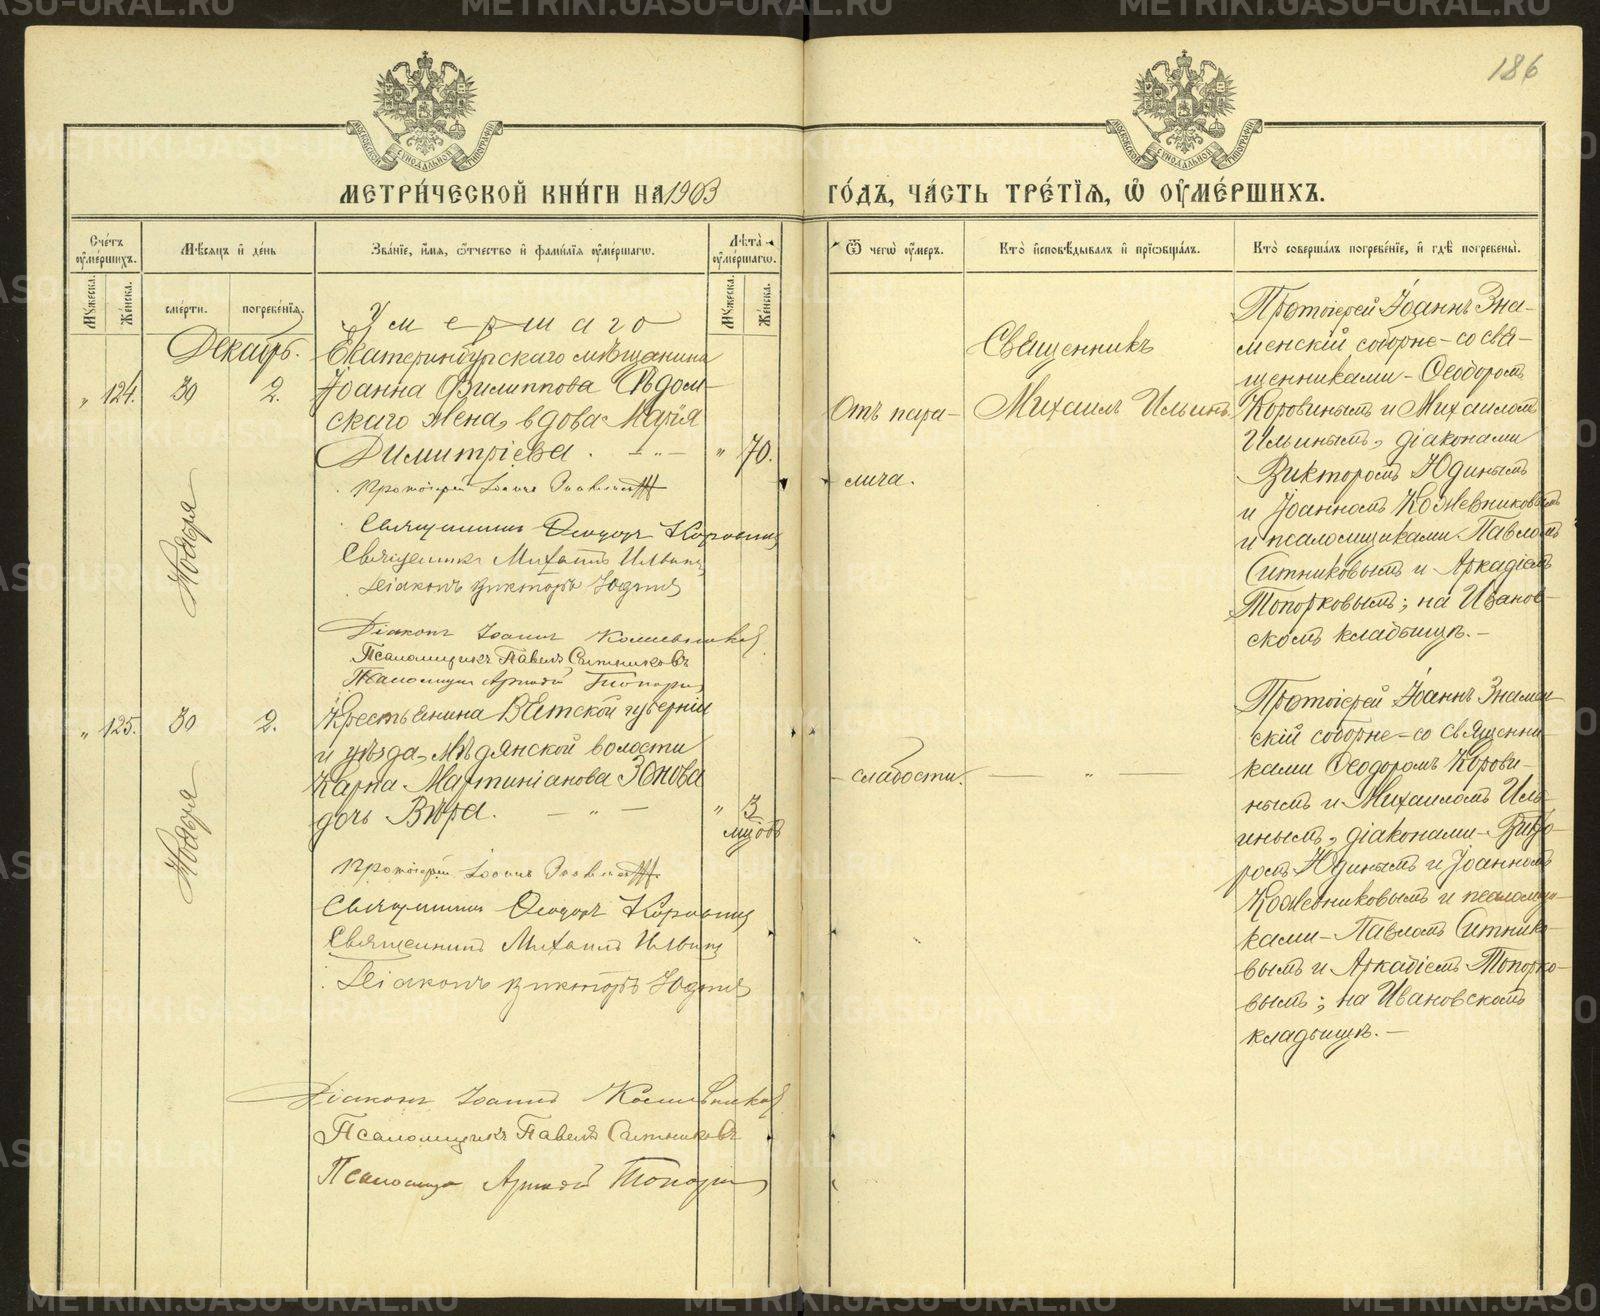 186
МЕТРИ́ЧЕСКОЙ КНИ́ГИ НА 1903 ГО́ДЪ, ЧА́СТЬ ТРЕ́ТІѦ, Ѿ ОУМЕ́РШИХЪ.
Сче́тъ оуме́ршихъ.
Мѣсяцъ и де́нь
Зва́ніе, и́мя, ѻ́тчество и фами́лія оуме́ршагѡ.
Лѣта̀ оуме́ршагѡ.
Ѿ чегѡ̀ оу́меръ.
Кто̀ исповѣ́дывалъ и пріѡбща́лъ.
Кто̀ соверша́лъ погребе́ніе, и гдѣ̀ погребены̀.
Мꙋ́жеска.
Же́нска.
сме́рти.
погребе́нія.
Мꙋ́жеска.
Же́нска.
Умершаго
Декабрь.
Екатеринбургскаго мѣщанина
„ 124. 30 2.
Ноября
Іоанна Филиппова Сѣдом-
скаго жена, вдова Марія
Димитріева. — „ —
„ 70.
Протоіерей Іоаннъ Знаменскій
Священникъ Ѳеодоръ Коровинъ
Священникъ Михаилъ Ильинъ
Діаконъ Викторъ Юдинъ
Діаконъ Іоаннъ Кожевниковъ
Псаломщикъ Павелъ Ситниковъ
Псаломщикъ Аркадій Топорк
Отъ пара-
лича.
Священникъ
Михаилъ Ильинъ
Протоіерей Іоаннъ Зна-
менскій соборне - со свя-
щенниками - Ѳеодоромъ
Коровинымъ и Михаиломъ
Ильинымъ, діаконами
Викторомъ Юдинымъ
и Іоанномъ Кожевниковымъ
и псаломщиками Павломъ
Ситниковымъ и Аркадіемъ
Топорковымъ; на Иванов-
скомъ кладбищѣ. -
„ 125. 30 2.
Ноября
Крестьянина Вятской губерніи
и уѣзда, Мѣдянской волости
Карпа Мартиніанова Зонова
дочь Вѣра. — „ —
„ 3
Протоіерей Іоаннъ Знаменскій
Священникъ Ѳеодоръ Коровинъ
Священникъ Михаилъ Ильинъ
Діаконъ Викторъ Юдинъ
Діаконъ Іоаннъ Кожевниковъ
Псаломщикъ Павелъ Ситниковъ
Псаломщикъ Аркадій Топорк
слабости.
— „ —
Протоіерей Іоаннъ Знамен-
скій соборне - со священни-
ками Ѳеодоромъ Корови-
нымъ и Михаиломъ Иль-
инымъ, діаконами - Викто-
ромъ Юдинымъ и Іоанномъ
Кожевниковымъ и псаломщи-
ками - Павломъ Ситнико-
вымъ и Аркадіемъ Топорко-
вымъ; на Ивановскомъ
кладбищѣ. -